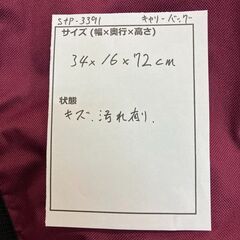 StP-3391 キャリーバッグ
サイズ (幅×奥行×高さ)
34×16×72cm
状態
キズ、汚れ有り.